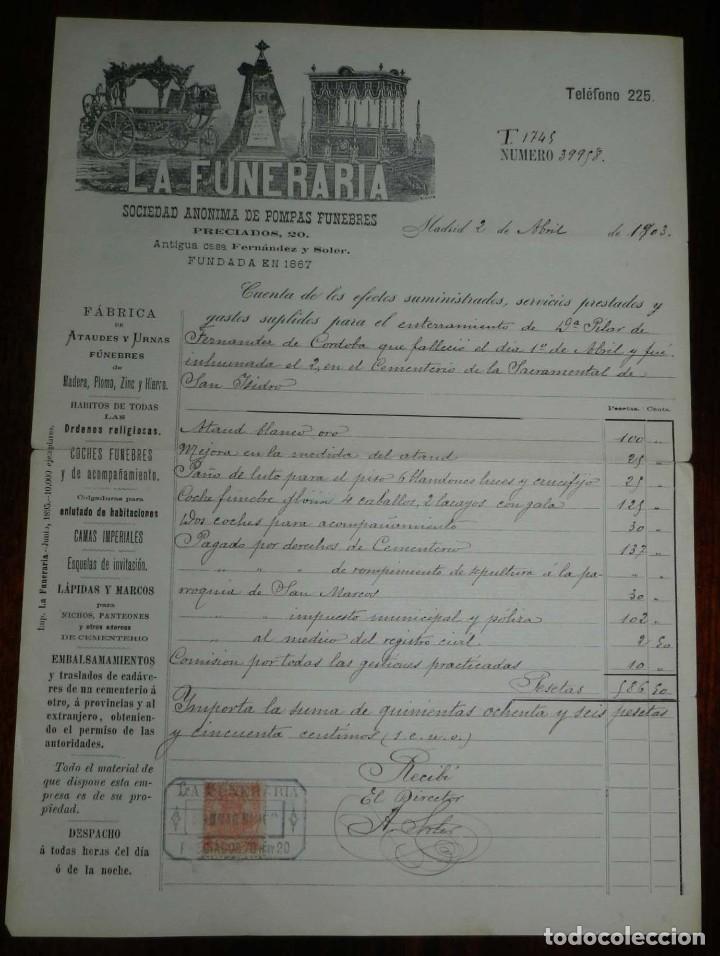 Teléfono 225.
T. 1745
NUMERO 39958.
LA FUNERARIA
SOCIEDAD ANONIMA DE POMPAS FUNEBRES
PRECIADOS, 20.
Antigua casa Fernández y Soler.
FUNDADA EN 1867
Madrid 2 de Abril de 1903.
Cuenta de los efectos suministrados, servicios prestados y
gastos suplidos para el enterramiento de Dª Pilar de
Fernandez de Cordoba que falleció el dia 1º de Abril y fué
inhumada el 2, en el Cementerio de la Sacramental de
San Isidro
Pesetas. Cents.
Ataud blanco oro 100 "
Mejora en la medida del ataud 25 "
Paño de luto para el piso 6 blandones luces y crucifijo 25 "
Coche funebre gloria 4 caballos, 2 lacayos con gala 125 "
Dos coches para acompañamiento 30 "
Pagado por derechos de Cementerio 137 "
" " " de rompimiento de sepultura á la pa- " "
rroquia de San Marcos 30 "
" " impuesto municipal y póliza 102 "
" al medico del registro civil 2 50
Comision por todas las gestiones practicadas 10 "
Pesetas 586 50
Importa la suma de quinientas ochenta y seis pesetas
y cincuenta centimos (s.e.u.o.)
Recibí
El Director
A. Soler
LA FUNERARIA
20
FÁBRICA
DE
ATAUDES Y URNAS
FÚNEBRES
de
Madera, Plomo, Zinc y Hierro.
HABITOS DE TODAS
LAS
Ordenes religiosas.
COCHES FUNEBRES
y de acompañamiento.
Colgaduras para
enlutado de habitaciones
CAMAS IMPERIALES
Esquelas de invitación.
LÁPIDAS Y MARCOS
para
NICHOS, PANTEONES
y otros adornos
DE CEMENTERIO
EMBALSAMAMIENTOS
y traslados de cadáve-
res de un cementerio á
otro, á provincias y al
extranjero, obtenien-
do el permiso de las
autoridades.
Todo el material de
que dispone esta em-
presa es de su pro-
piedad.
DESPACHO
á todas horas del día
ó de la noche.
Imp. La Funeraria.-Junio, 1895.-10.000 ejemplares.
todocoleccion.net